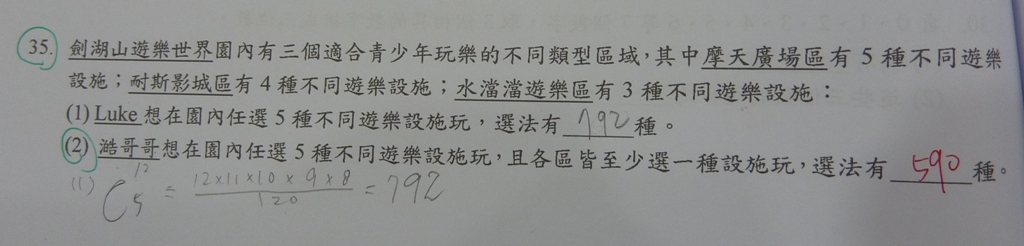 35. 劍湖山遊樂世界園內有三個適合青少年玩樂的不同類型區域，其中摩天廣場區有 5 種不同遊樂
設施；耐斯影城區有 4 種不同遊樂設施；水濿濿遊樂區有 3 種不同遊樂設施：
(1) Luke 想在園內任選 5 種不同遊樂設施玩，選法有 792 種。
(2) 澔哥哥想在園內任選 5 種不同遊樂設施玩，且各區皆至少選一種設施玩，選法有 590 種。
(1) C 12 5 = 12×11×10×9×8 / 120 = 792